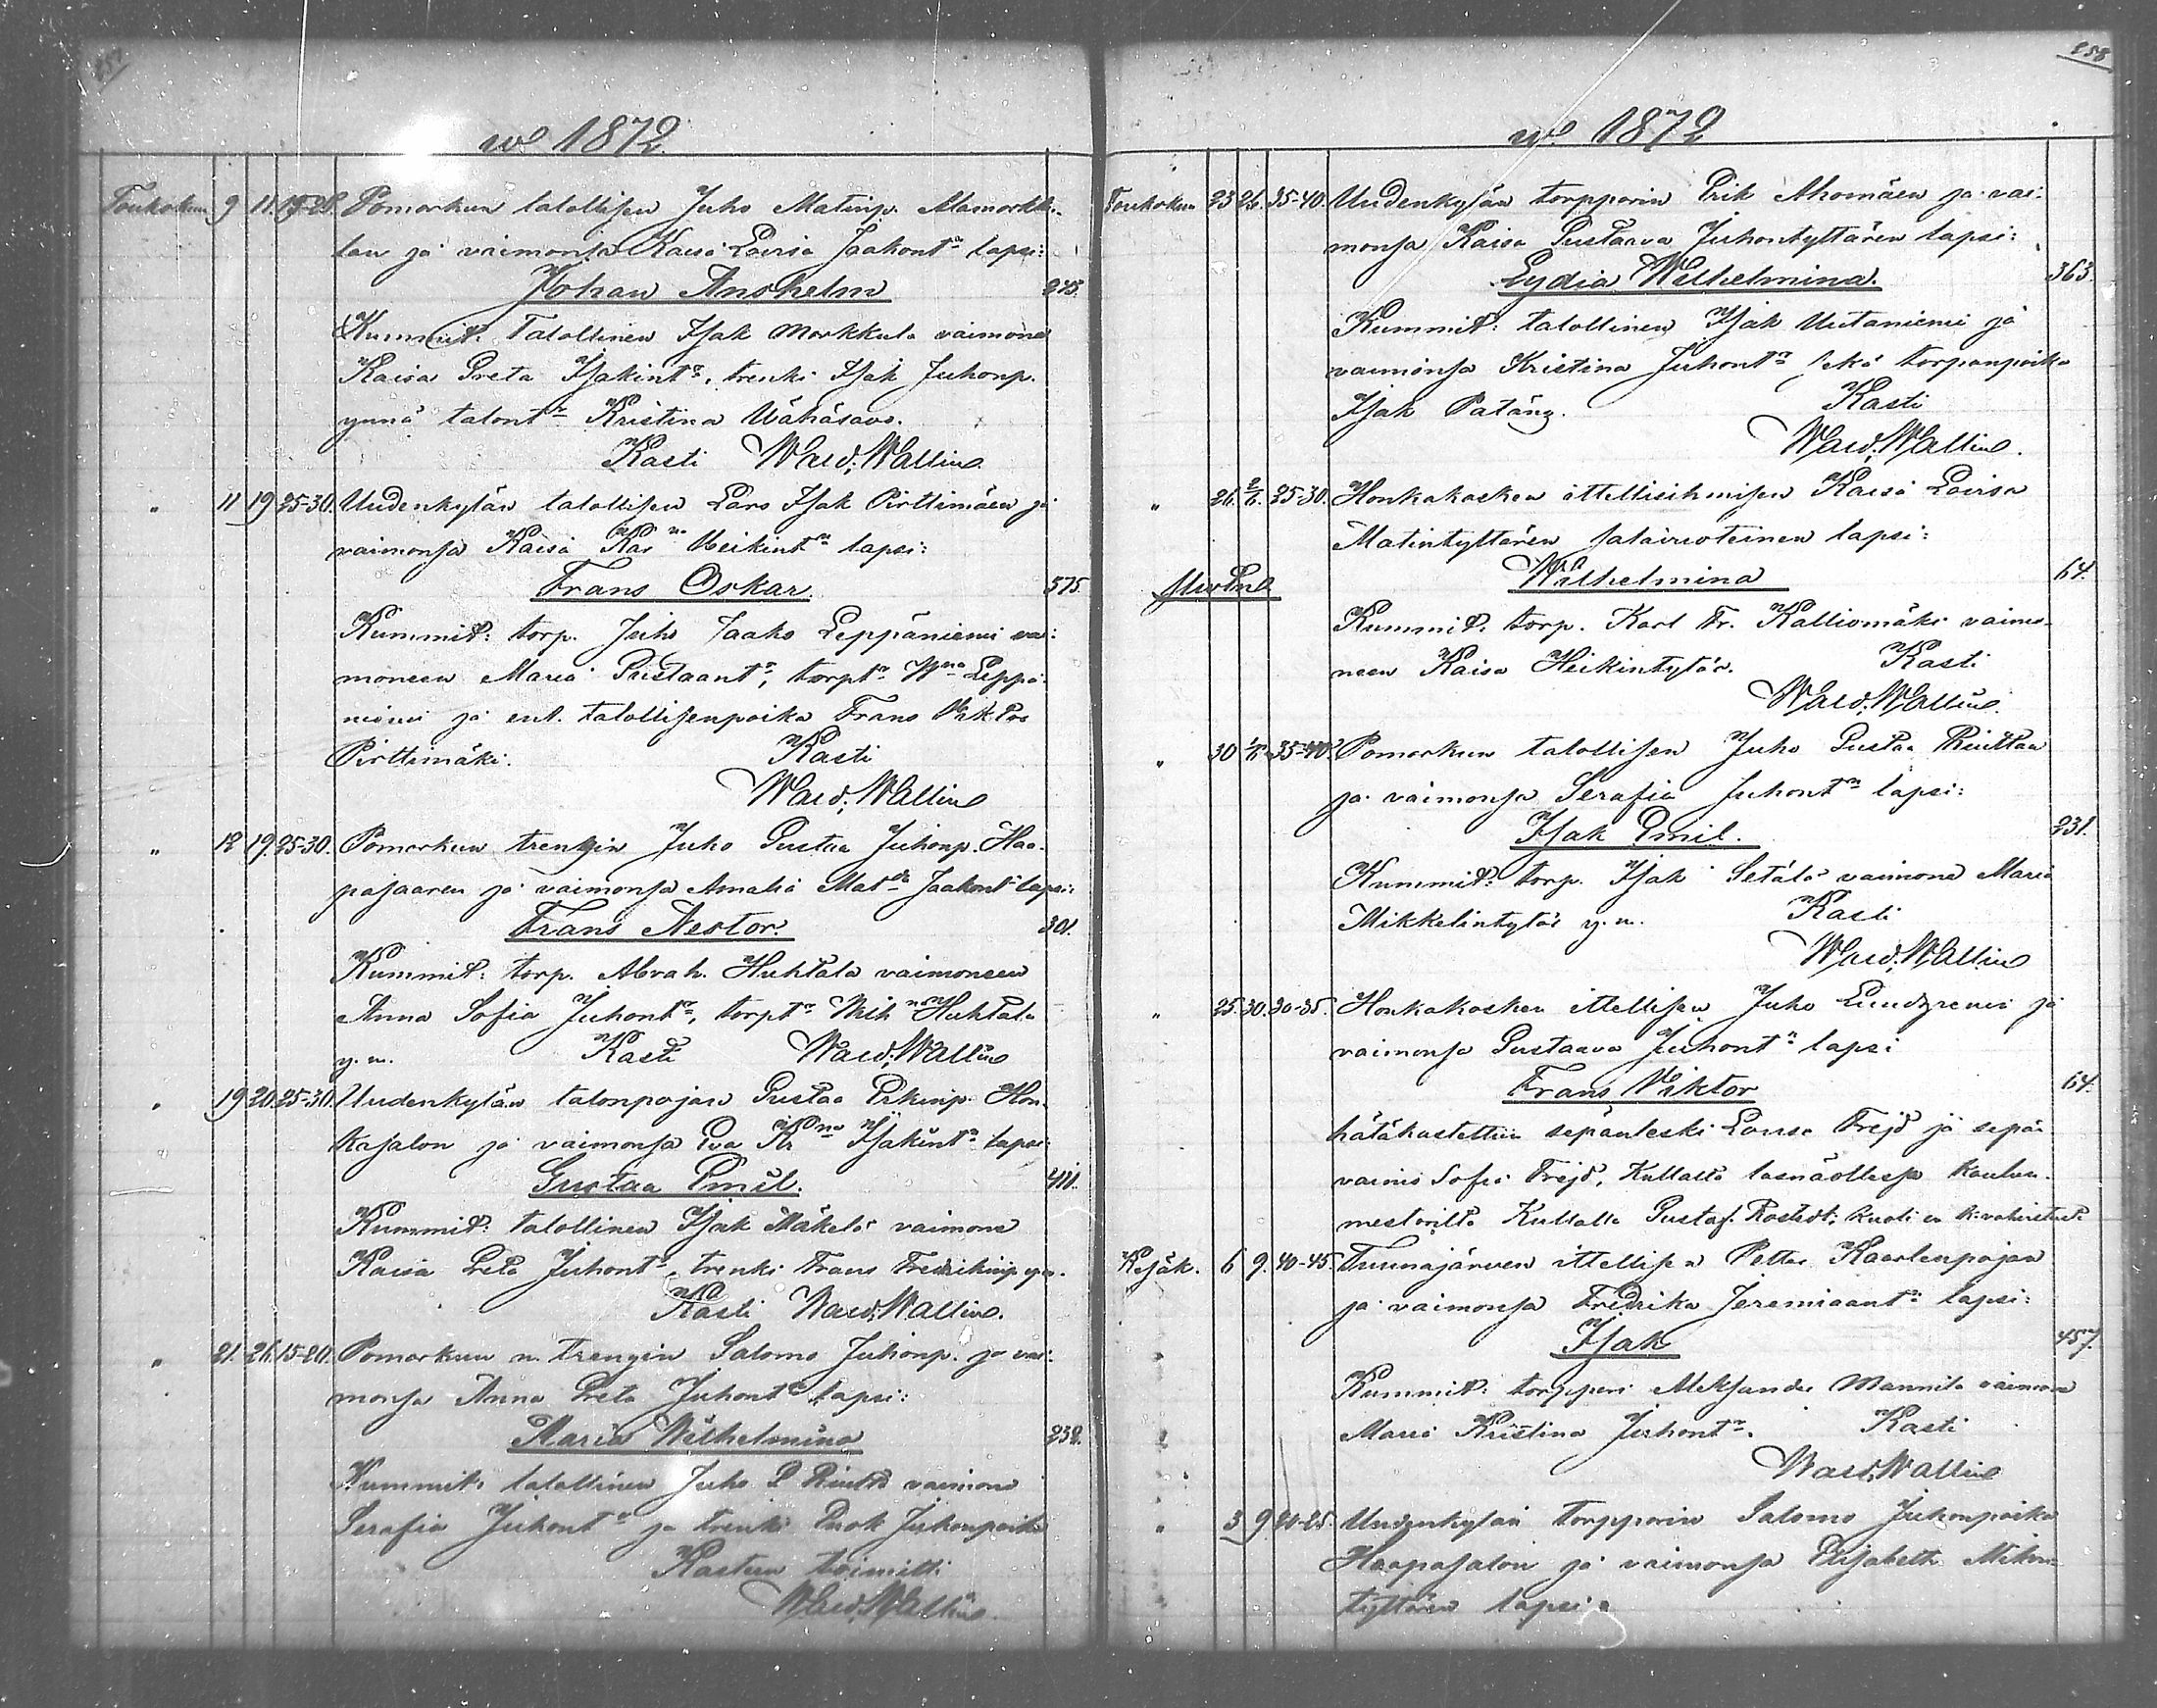 257
w. 1872.
Toukokuu 9 11. 15-20. Pomarkun talollisen Juho Matinp. Alamarkku-
lan ja vaimonsa Kaisa Lovisa Jaakont:n lapsi:
Johan Anshelm 245.
Kummit: Talollinen Isak Markkula vaimone
Kaisa Greta Isakint:r, trenki Isak Juhonp.
ynnä talont:r Kristina Wähäsavo.
Kasti Wald. Wallin
" 11 19 25-30. Uudenkylän talollisen Lars Isak Pirttimäen ja
vaimonsa Kaisa Kar:na Heikint:n lapsi:
Frans Oskar 375.
Kummit: torp. Juho Jaako Leppäniemi vai:
moneen Maria Gustaant:r, torpt:r W:na Leppä-
niemi ja ent. talollisenpoika Frans Viktor
Pirttimäki. Kasti
Wald. Wallin
" 12 19. 25-30. Pomarkun trengin Juho Gustaa Juhonp. Haa-
pasaaren ja vaimonsa Amalia Mat:da Jaakont:n lapsi:
Frans Nestor. 301.
Kummit: torp. Abrah. Huhtala vaimoneen
Anna Sofia Juhont:r, torpt:r Wilh:na Huhtala
y. m. Kasti Wald. Wallin
" 19 20. 25-30. Uudenkylän talonpojan Gustaa Erkinp. Hon-
kasalon ja vaimonsa Eva Kr:na Isakint:n lapsi:
Gustaa Emil. 411.
Kummit: talollinen Isak Mäkelä vaimone
Kaisa Greta Juhont:r, trenki Frans Fredrikinp. ym.
Kasti Wald. Wallin.
" 21. 26. 15-20. Pomarkun n. trengin Salomo Juhonp. ja vai:
monsa Anna Greta Juhont:n lapsi:
Maria Wilhelmina 232.
Kummit: talollinen Juho G. vaimone
Serafia Juhont:r ja trenki Juhonpoika
Kasteen toimitti
Wald. Wallin.
258
w. 1872
Toukokuu 23 26. 35-40. Uudenkylän torpparin Erik Ahomäen ja vai:
monsa Kaisa Gustaava Juhontyttären lapsi:
Lydia Wilhelmina. 363.
Kummit: talollinen Isak Uutaniemi ja
vaimonsa Kristina Juhont:r sekä torpanpoika
Isak Patäng. Kasti
Wald. Wallin.
" 26. 2/6. 25-30. Honkakosken ittellisihmisen Kaisa Lovisa
Matintyttären salavuoteinen lapsi:
Äwpml Wilhelmina 64.
Kummit: torp. Karl Fr. Kalliomäki vaimo-
neen Kaisa Heikintytär. Kasti
Wald. Wallin.
" 30 35-40. Pomarkun talollisen Juho Gustaa
ja vaimonsa Serafia Juhont:n lapsi:
Isak Emil. 231.
Kummit: torp. Isak Setälä vaimone Maria
Mikkelintytär y. m. Kasti
Wald. Wallin
" 25. 30. 30-35. Honkakosken ittellisen Juho Lundgrenin ja
vaimonsa Gustaava Juhont:n lapsi
Frans Viktor 64.
hätäkastettiin sepänleski Lovisa Frejd ja sepän
vaimo Sofia Frejd, Kullalta läsnäollessa koulu-
mestarilta Kullalla Gustaf. Rostedt;
Kesäk. 6 9. 40-45. Tuunajärven ittellisen Petter Kaarlenpojan
ja vaimonsa Fredrika Jeremiaant:n lapsi:
Isak 457.
Kummit: torppari Aleksander Mannila vaimone
Maria Kristina Juhont:r. Kasti
Wald. Wallin
" 3 9 20-25. Uudenkylän torpparin Salomo Juhonpoika
Haapasalon ja vaimonsa Elisabeth Mikon-
tyttären lapsi: